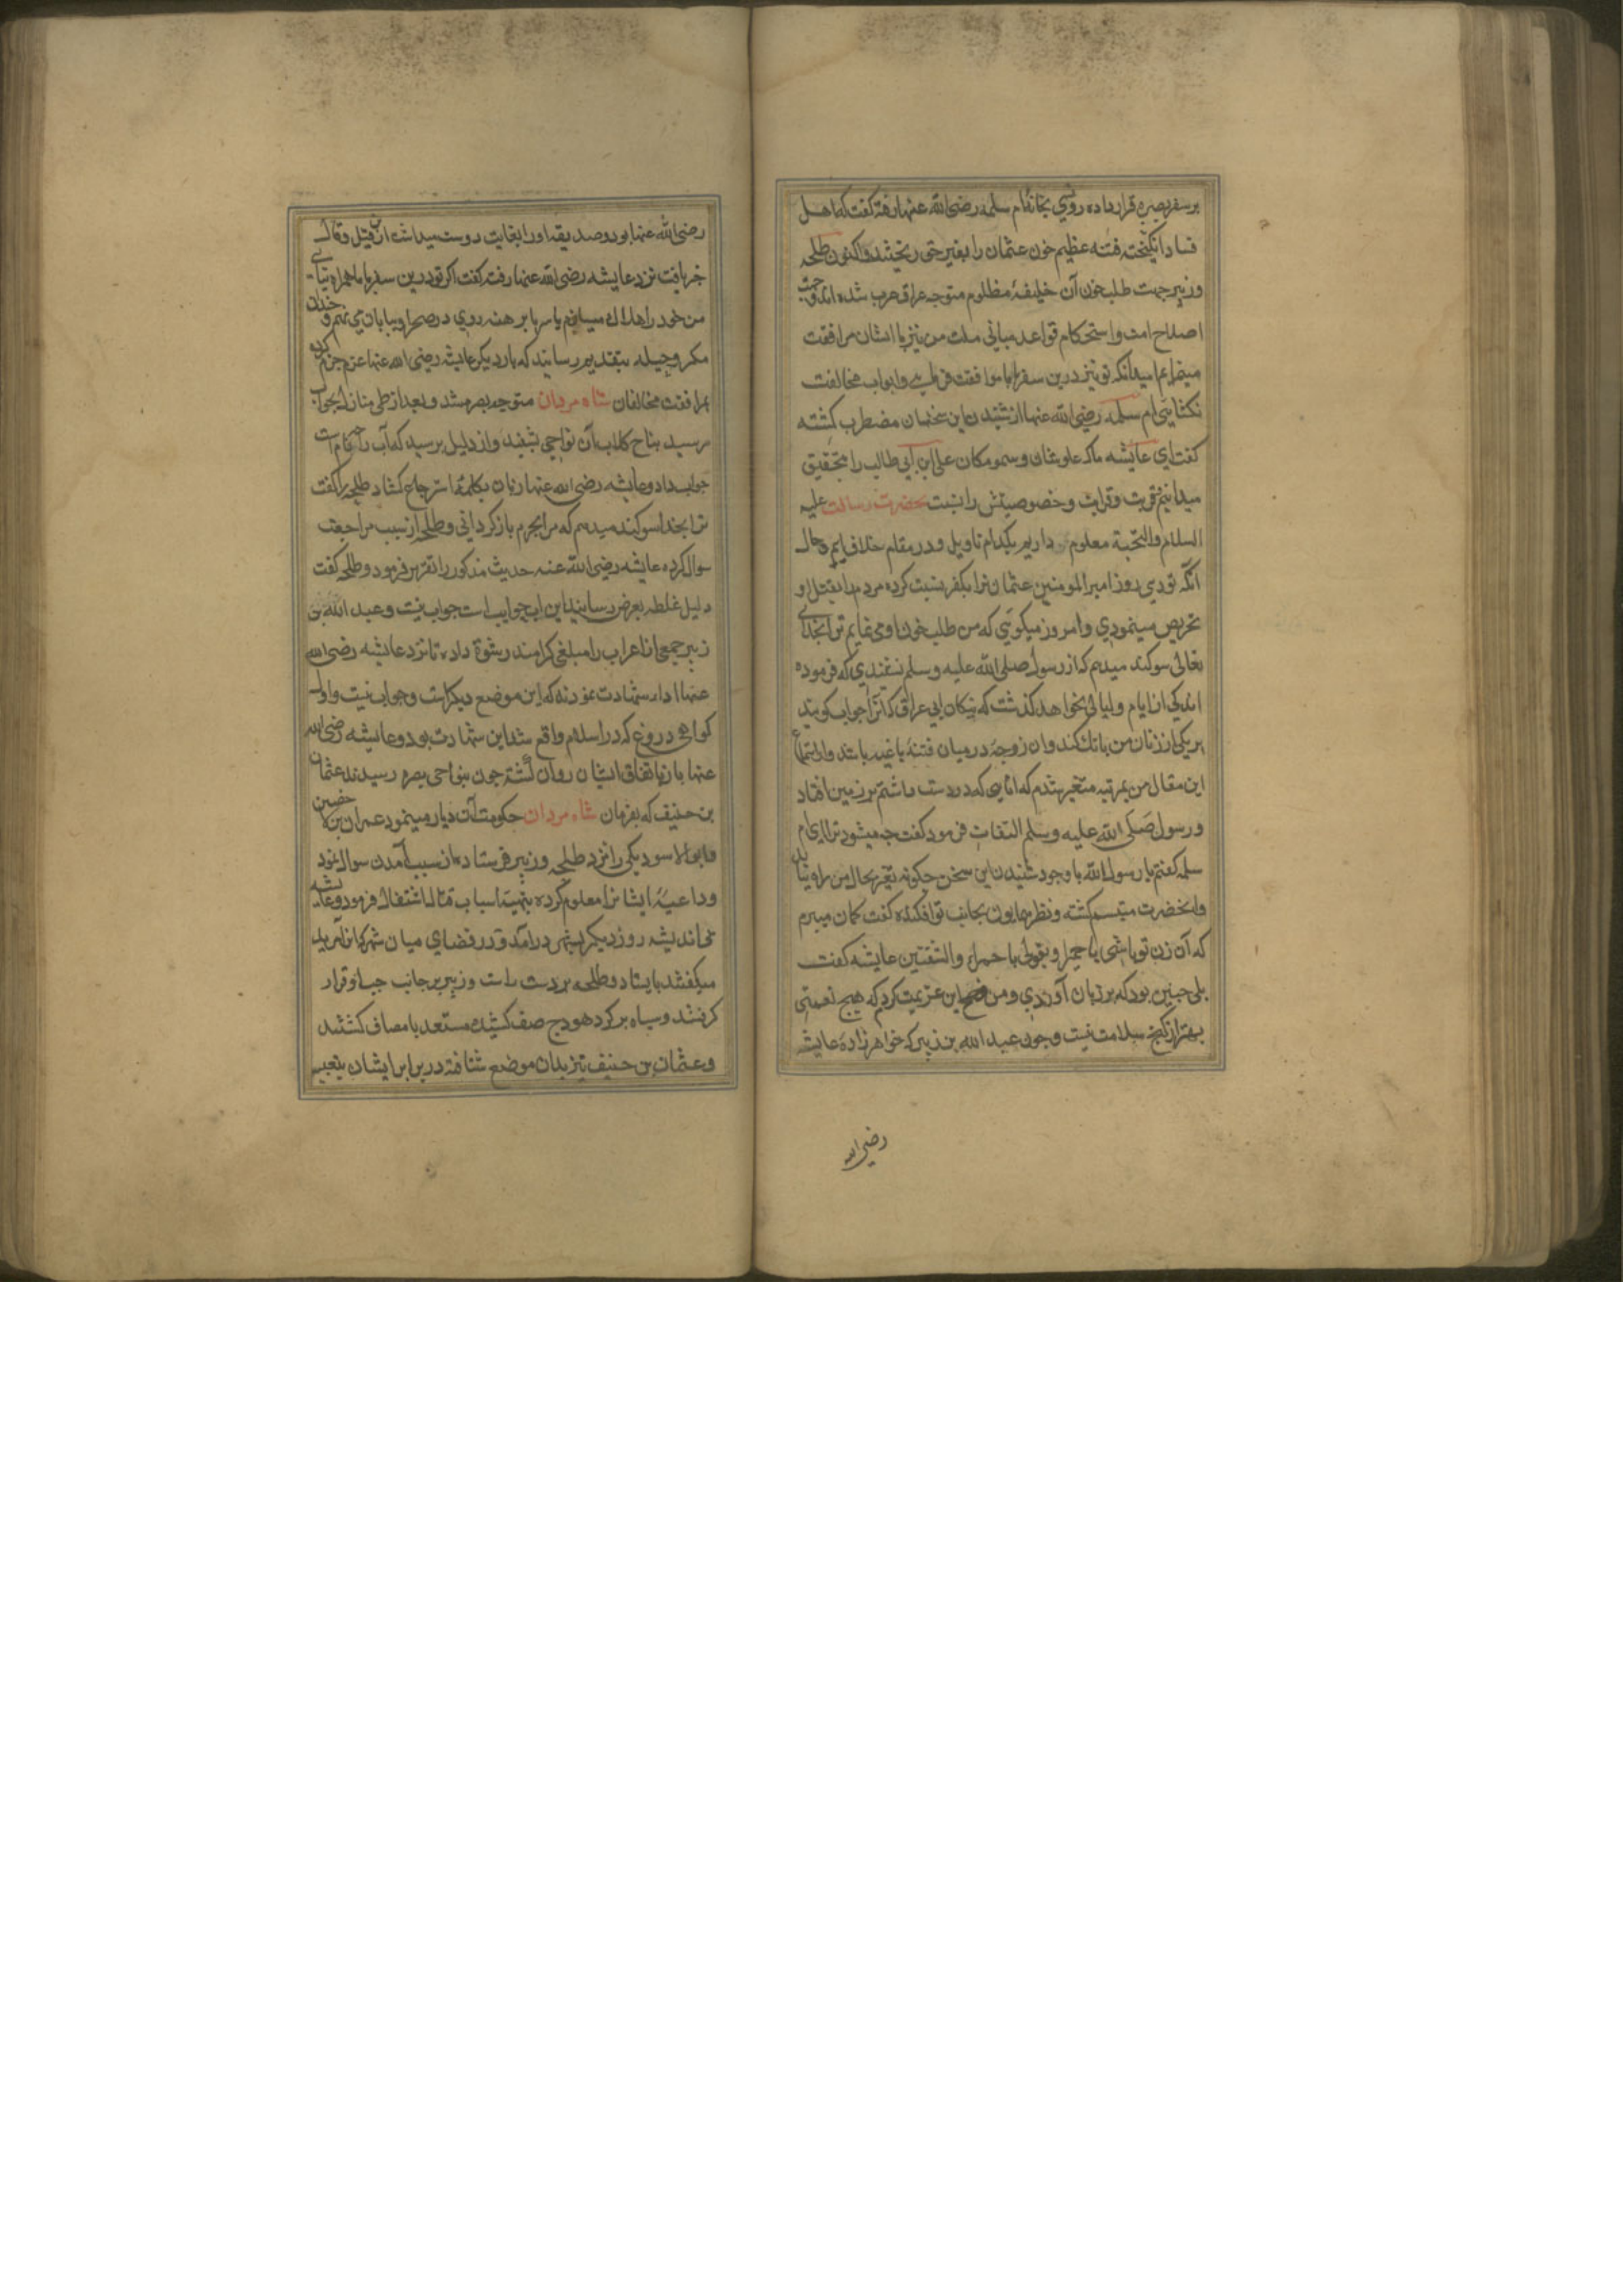 بر سفر بصره قرار داده روزی بخانه ام سلمه رضی الله عنها رفته کفت که اهل
فساد انکیخته فتنه عظیم خون عثمان را بغیر حق ریختند و اکنون طلحه
وزبیر جهت طلب خون آن خلیفهٔ مظلوم متوجه عراق عرب شده اند و جهت
اصلاح امت و استحکام قواعد مبانی ملت من نیز با ایشان مرافقت
مینمایم امید آنکه تو نیز درین سفر با ما موافقت فرمایی و ابواب مخالفت
نکشایی ام سلمه رضی الله عنها از شنیدن این سخنان مضطرب کشته
کفت ای عایشه ما که علو شان و سمو مکان علی ابن ابی طالب را بتحقیق
میدانیم و قربت و قرابت و خصوصیتش را نسبت بحضرت رسالت علیه
السلام والتحیة معلوم داریم بکدام تاویل و در مقام خلاف ایم و حال
آنکه تو دی روز امیر المومنین عثمان را بکفر نسبت کرده مردم را بقتل او
تحریص مینمودی و امروز میکویی که من طلب خون او می نمایم ترا بخدای
تعالی سوکند میدهم که از رسول صلی الله علیه وسلم نشنیدی که فرموده
اندکی از ایام و لیالی نخواهد کذشت که سکان ابی عراق که آنرا حواب کویند
بر یکی از زنان من بانک کنند و آن زوجه در میان فتنهٔ باغیه باشد و از استماع
این مقال من بمرتبه متغیر شدم که انایی که در دست داشتم بر زمین افتاد
و رسول صلی الله علیه وسلم التفات فرمود کفت چه میشود ترا ای ام
سلمه کفتم یا رسول الله با وجود شنیدن این سخن چکونه تغیر بحال من راه نیابد
وآنحضرت متبسم کشته و نظر همایون بجانب تو افکنده کفت کمان میبرم
که آن زن تو باشی یا حمیرا و بقولی یا حمراء والشفتین عایشه کفت
بلی چنین بود که بر زبان آوردی و من فسخ این عزیمت کردم که هیچ نعمتی
بهتر از کنج سلامت نیست و چون عبد الله بن زبیر که خواهر زاده عایشه
رضی الله
رضی الله عنها بود و صدیقه او را بغایت دوست میداشت ازین قیل و قال
خبر یافت نزد عایشه رضی الله عنها رفته کفت اکر تو درین سفر با ما همراه نیایی
من خود را هلاک میسازم یا سر پا برهنه روی در صحرا و بیابان می نهم و چندان
مکر و حیله بتقدیم رسانید که بار دیکر عایشه رضی الله عنها عزم جزم کرده
بمرافقت مخالفان شاه مردان متوجه بصره شد و بعد از طی منازل بحواب
رسید نباح کلاب آن نواحی بشنید و از دلیل پرسید که آب را چه نام است
جواب داد و عایشه رضی الله عنها زبان بکلمهٔ استرجاع کشاد طلحه را کفت
ترا بخدا سوکند میدهم که مرا بحرم باز کردانی و طلحه از سبب مراجعت
سوال کرده عایشه رضی الله عنه حدیث مذکور را تقریر فرمود و طلحه کفت
دلیل غلط بعرض رسانید این آب حواب است حواب نیست و عبد الله بن
زبیر جمعی از اعراب را مبلغی کرامند رشوة داده تا نزد عایشه رضی الله
عنها اداء شهادت نمودند که این موضع دیکر است و حواب نیست و اول
کواهی دروغ که در اسلام واقع شد این شهادت بود و عایشه رضی الله
عنها باز باتفاق ایشان روان کشته چون بنواحی بصره رسیدند عثمان
بن حنیف که بفرمان شاه مردان حکومت آن دیار مینمود عمران بن حصین
و ابو الاسود یکی را نزد طلحه و زبیر فرستاده از سبب آمدن سوال نمود
و داعیهٔ ایشانرا معلوم کرده بتهیهٔ اسباب قتال اشتغال فرمود و عایشه
روز دیکر بشهر درآمد و در فضای میان شهر که آنرا مربد
میکفتند بایستاد و طلحه بر دست راست و زبیر بر جانب چپ او قرار
کرفتند و سپاه بر کرد هودج صف کشیده مستعد با مصاف کشتند
و عثمان بن حنیف نیز بدان موضع شتافته در برابر ایشان بتعبیه